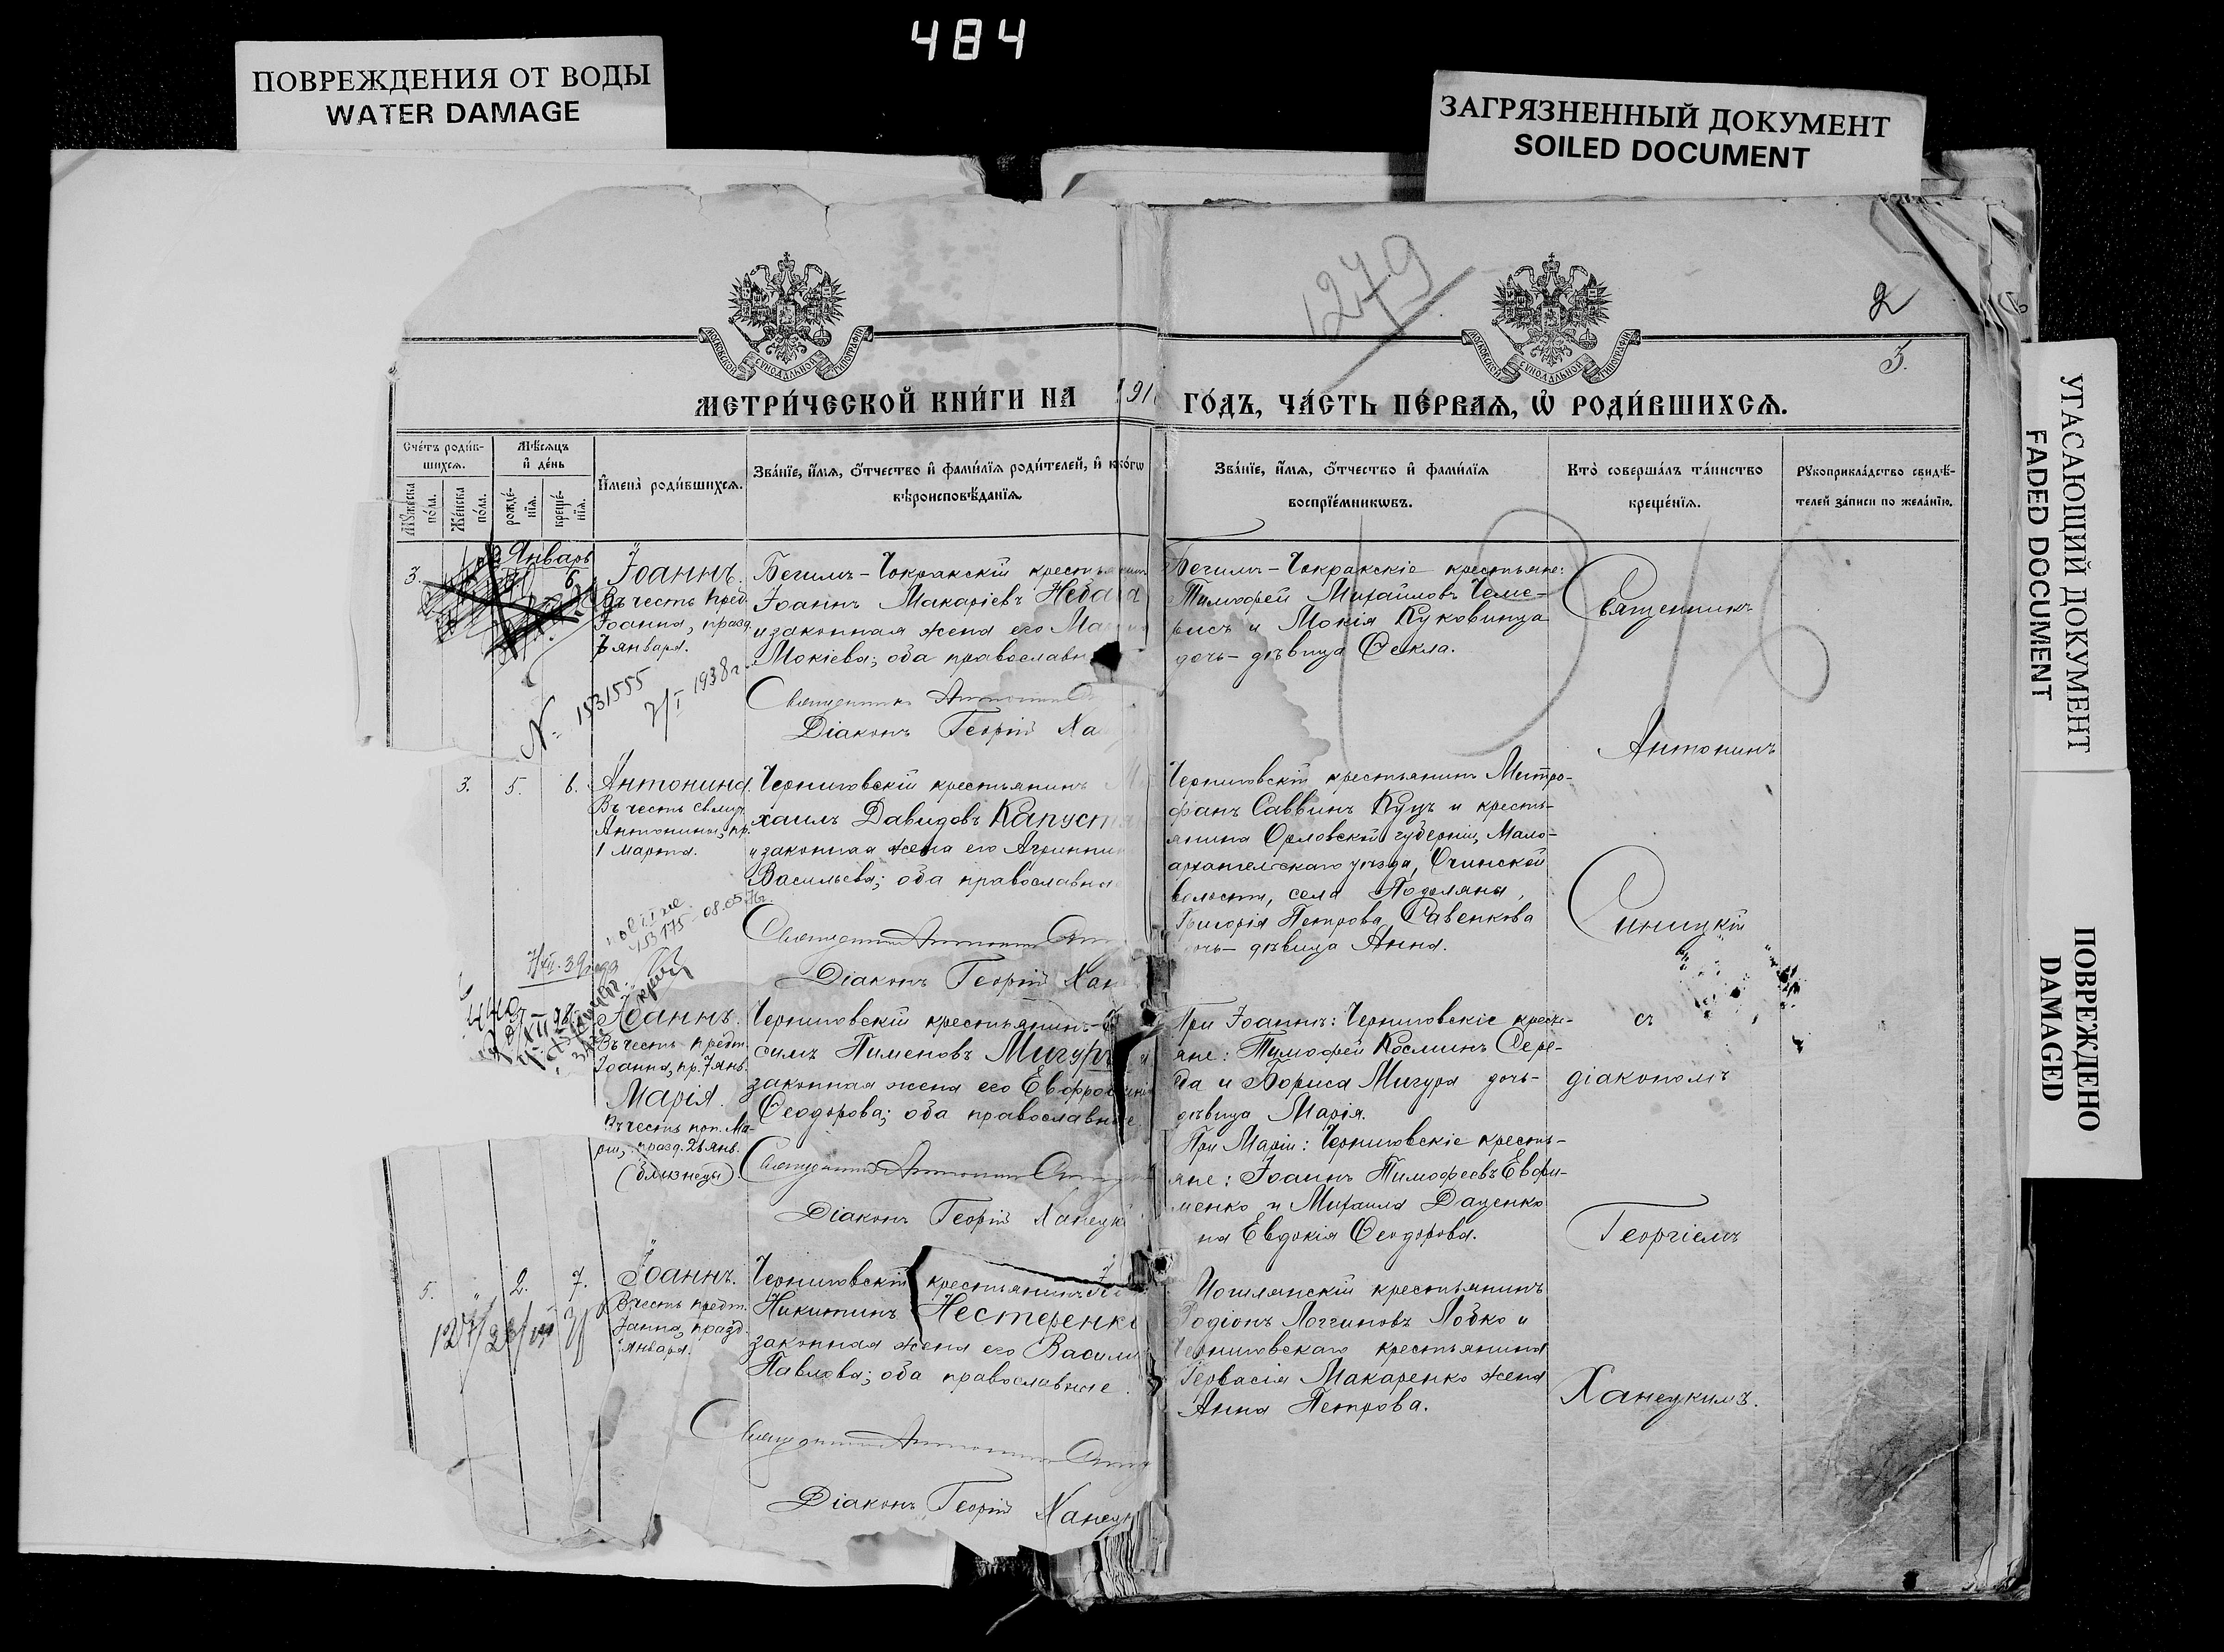 484
ПОВРЕЖДЕНИЯ ОТ ВОДЫ
WATER DAMAGE
ЗАГРЯЗНЕННЫЙ ДОКУМЕНТ
SOILED DOCUMENT
УГАСАЮЩИЙ ДОКУМЕНТ
FADED DOCUMENT
ПОВРЕЖДЕНО
DAMAGED
1279
2
3.
МОСКОВСКОЙ СѴНОДАЛЬНОЙ ТИПОГРАФІИ
МОСКОВСКОЙ СѴНОДАЛЬНОЙ ТИПОГРАФІИ
МЕТРИ́ЧЕСКОЙ КНИ́ГИ НА 191
ГО́ДЪ, ЧА́СТЬ ПЕ́РВАѦ, Ѡ҆ РОДИ́ВШИХСѦ.
Сче́тъ роди́в-
шихсѧ.
Мѣ́сѧцъ
и҆ де́нь
Мꙋ́жеска
по́ла.
Же́нска
по́ла.
рожде́-
нїѧ.
креще́-
нїѧ.
И҆мена̀ роди́вшихсѧ.
Зва́нїе, и҆́мѧ, о҆́тчество и҆ фами́лїѧ роди́телей, и҆ ко́гѡ
вѣроисповѣ́данїѧ.
Зва́нїе, и҆́мѧ, о҆́тчество и҆ фами́лїѧ
воспрїе́мникѡвъ.
Кто̀ соверша́лъ та́инство
креще́нїѧ.
Рꙋкоприкла́дство свидѣ́-
телей за́писи по жела́нїю.
1916
3.
Январь
6.
Іоаннъ.
Въ честь пред.
Іоанна, празд.
7 января.
Бегимъ-Чокракскій крестьянинъ
Іоаннъ Макаріевъ Неба
и законная жена его Ма
Мокіева; оба православн
Священникъ Антонинъ
Діаконъ Георгій Ха
№ 1831555
2/I 1938 г.
Бегимъ-Чокракскіе крестьяне:
Тимофей Михайловъ Чеме-
рисъ и Мокія Куковинца
дочь-дѣвица Ѳекла.
Священникъ
Антонинъ
3. 5. 6.
Антонина.
Въ честь св. муч.
Антонины, пр.
1 марта.
Черниговскій крестьянинъ Ми
хаилъ Давидовъ Капуст
и законная жена его Агриппин
Васильева; оба православны
Священникъ Антонинъ
Діаконъ Георгій Хан
Черниговскій крестьянинъ Митро-
фанъ Саввинъ Куцъ и кресть-
янина Орловской губерніи, Мало-
архангельскаго уѣзда,
волости, села Подоляны,
Григорія Петрова Савенкова
дочь-дѣвица Анна.
Синицкій
Іоаннъ.
Въ честь предт.
Іоанна, пр. 7 янв.
Марія.
Въ честь преп. Ма-
ріи, празд. 26 янв.
(близнецы).
Черниговскій крестьянинъ
симъ Пименовъ Мигур и
законная жена его Евфросинія
Ѳеодорова; оба православные
Священникъ Антонинъ
Діаконъ Георгій Ханецк
При Іоаннѣ: Черниговскіе кресть-
яне: Тимофей Косминъ Сере-
да и Бориса Мигура дочь-
дѣвица Марія.
При Маріи: Черниговскіе кресть-
яне: Іоаннъ Тимофеевъ Евфи-
менко и Михаила Даценко
на Евдокія Ѳеодорова.
съ
діакономъ
Георгіемъ
5. " 2. 7.
Іоаннъ.
Въ честь предт.
Іоанна, празд.
января.
Черниговскій крестьянинъ
Никитинъ Нестеренко
законная жена его Васили
Павлова; оба православные.
Священникъ Антонинъ
Діаконъ Георгій Ханецк
крестьянинъ
Родіонъ Логгиновъ Лобко и
Черниговскаго крестьянина
Гервасія Макаренко жена
Анна Петрова.
Ханецкимъ.